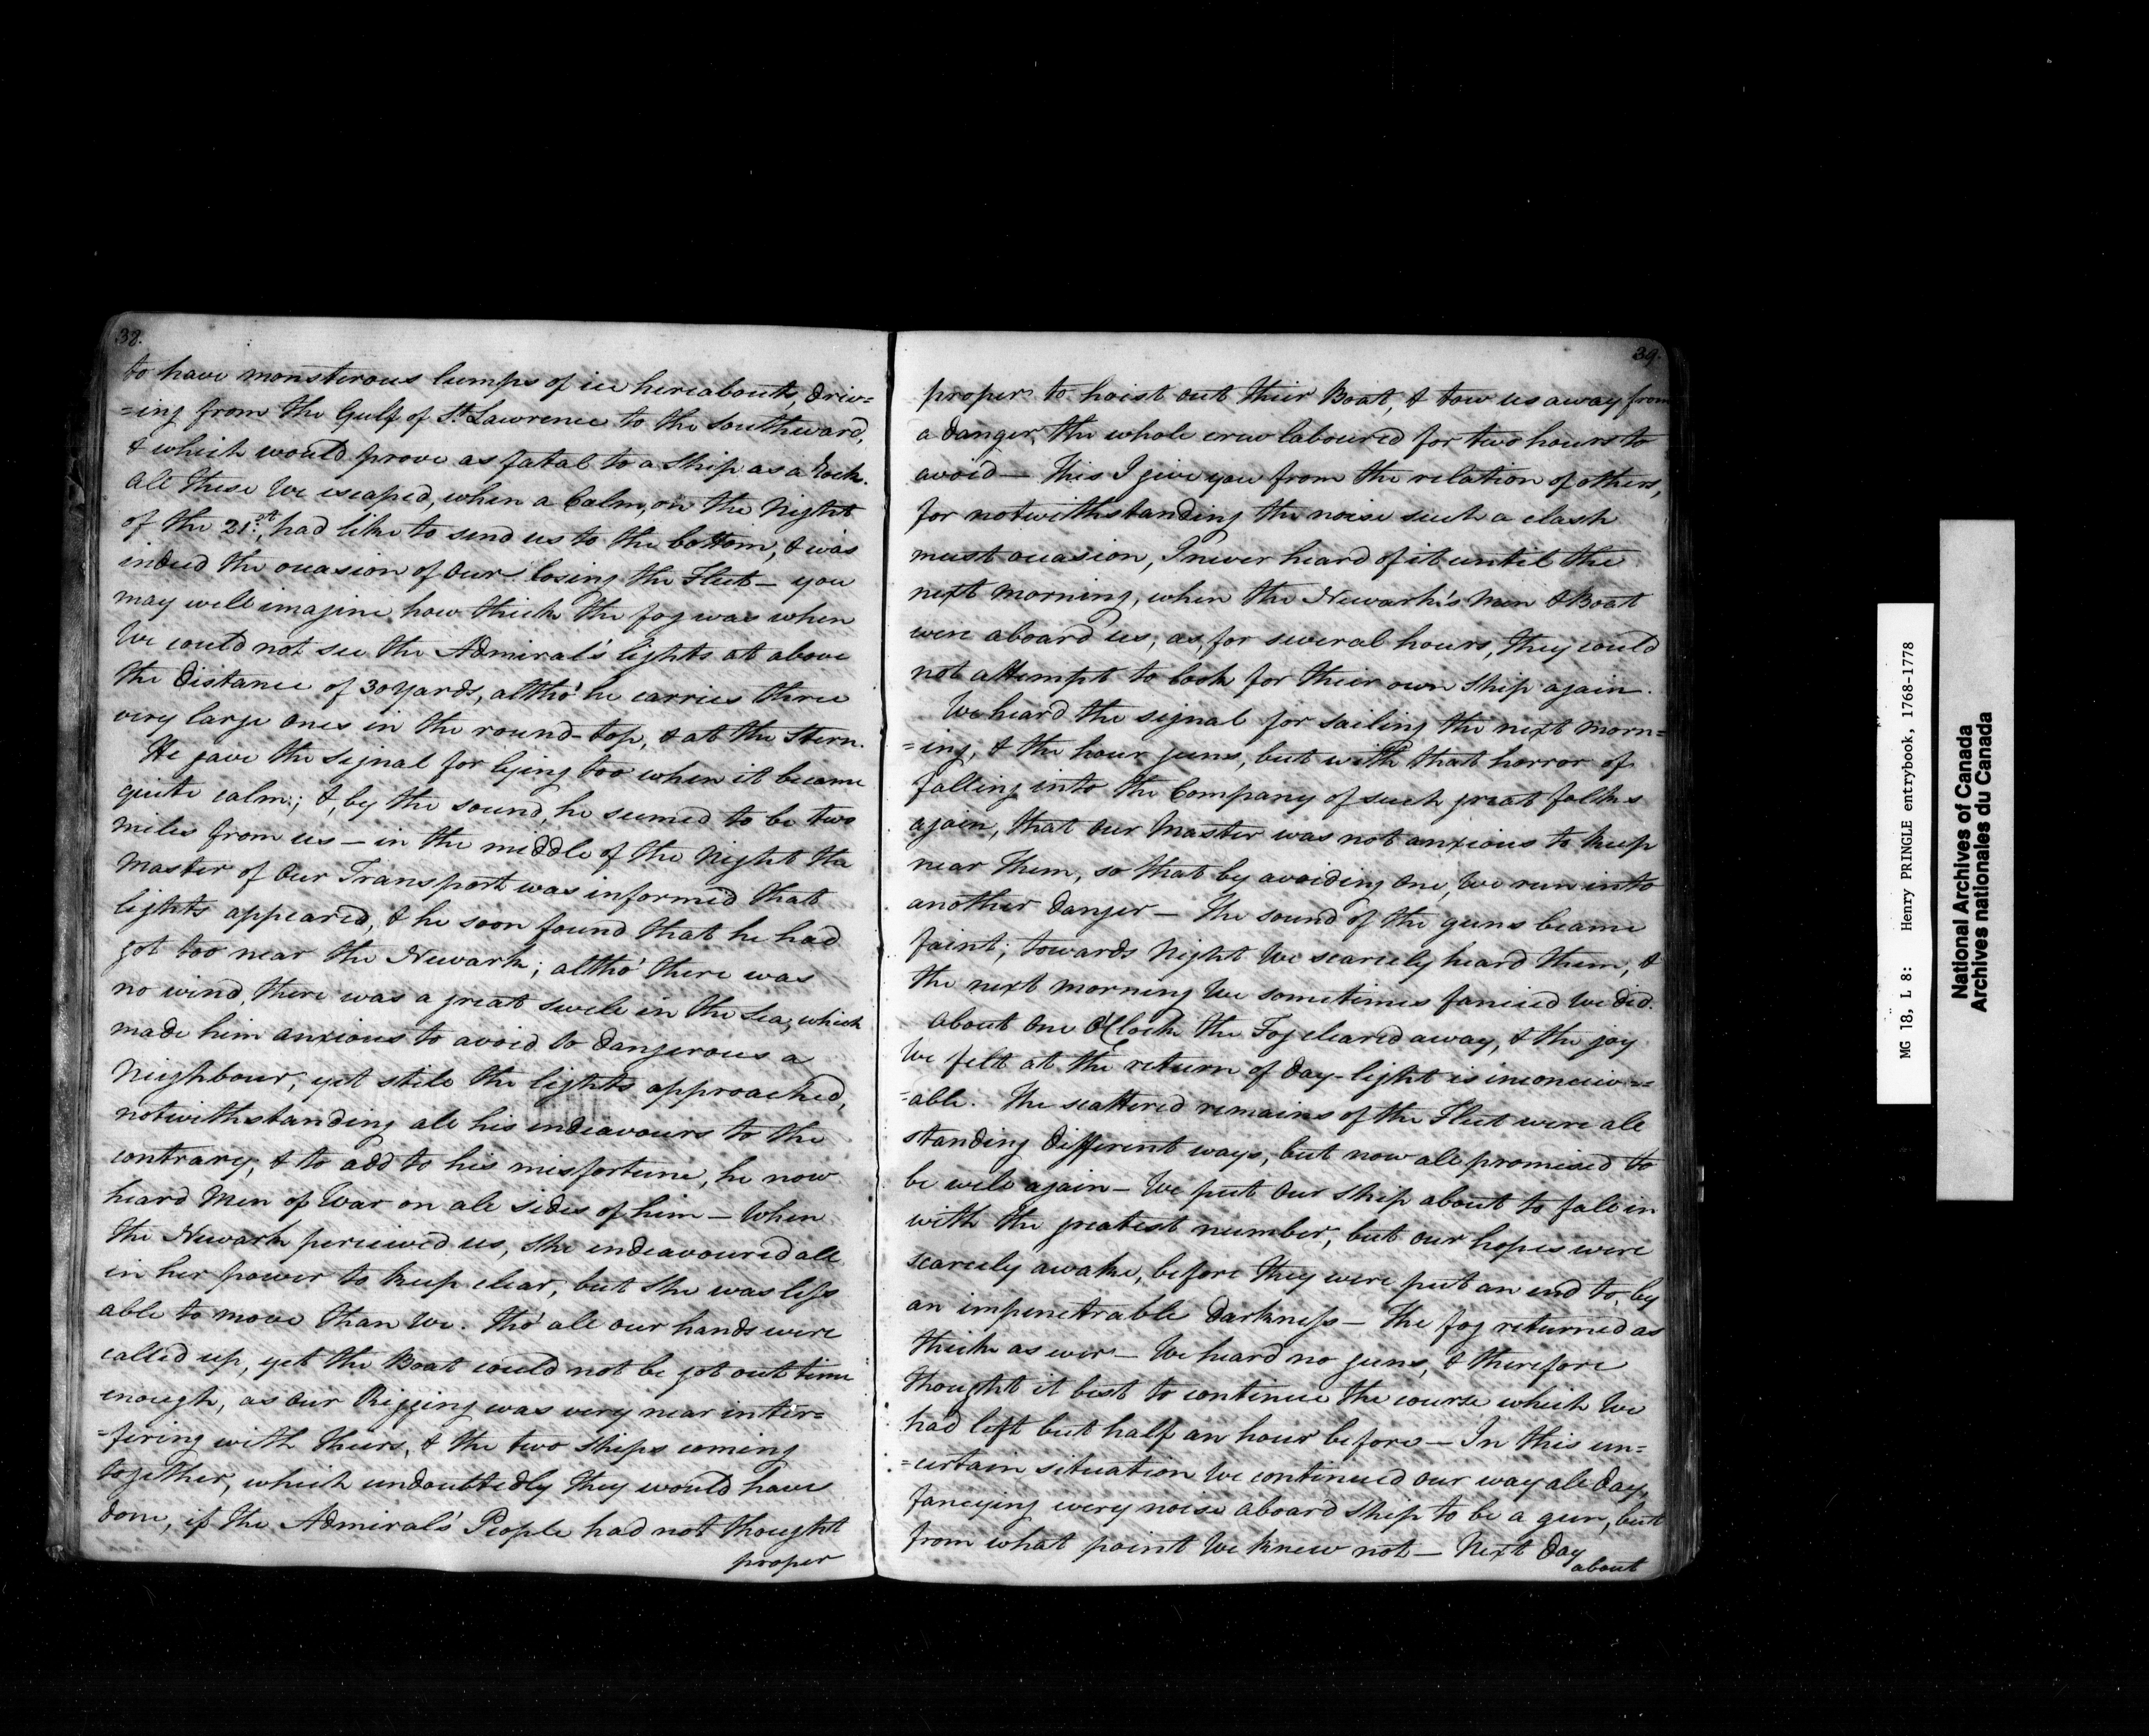 38.
to have monsterous lumps of ice hereabouts, driv=
=ing from the Gulf of St. Lawrence to the Southward,
& which would prove as fatal to a Ship as a Rock.
All these We escaped, when a Calm, on the Night
of the 21.st, had like to send us to the bottom, & was
indeed the occasion of Our losing the Fleet — you
may well imagine how thick the fog was when
We could not see the Admiral's lights at above
the distance of 30 yards, altho' he carries three
very large ones in the round-top, & at the Stern.
He gave the Signal for lying too when it became
quite calm; &, by the sound, he seemed to be two
Miles from us — in the middle of the Night the
Master of Our Transport was informed that
lights appeared, & he soon found that he had
got too near the Newark; altho' there was
no wind, there was a great swell in the Sea, which
made him anxious to avoid so dangerous a
Neighbour; yet still the lights approached,
notwithstanding all his endeavours to the
contrary; & to add to his misfortune, he now
heard Men of War on all sides of him — When
the Newark perceived us, She endeavoured all
in her power to keep clear, but She was less
able to move than We. tho' all our hands were
called up, yet the Boat could not be got out time
enough, as our Rigging was very near inter=
=fering with theirs, & the two Ships coming
together, which undoubtedly they would have
done, if the Admiral's People had not thought
proper
39.
proper to hoist out their Boat, & tow us away from
a danger, the whole crew laboured for two hours to
avoid — This I give you from the relation of others,
for notwithstanding the noise such a clash
must occasion, I never heard of it until the
next morning, when the Newark's Men & Boat
were aboard us, as, for several hours, they could
not attempt to look for their own Ship again.
We heard the signal for sailing the next morn=
=ing, & the hour guns, but with that horror of
falling into the Company of such great folks
again, that Our Master was not anxious to keep
near them, so that by avoiding One, We run into
another danger — The sound of the guns became
faint; towards Night We scarcely heard them, &
the next morning We sometimes fancied We did.
About One O'Clock the Fog cleared away, & the joy
We felt at the return of day-light is inconceiv=
=able. The scattered remains of the Fleet were all
standing different ways, but now all promised to
be well again — We put Our Ship about to fall in
with the greatest number, but our hopes were
scarcely awake, before they were put an end to, by
an impenetrable darkness — The fog returned as
thick as ever — We heard no guns, & therefore
thought it best to continue the course which We
had left but half an hour before — In this un=
=certain situation We continued our way all day,
fancying every noise aboard Ship to be a gun, but
from what point We knew not — Next day
about
MG 18, L 8: Henry PRINGLE entrybook, 1768-1778
National Archives of Canada
Archives nationales du Canada